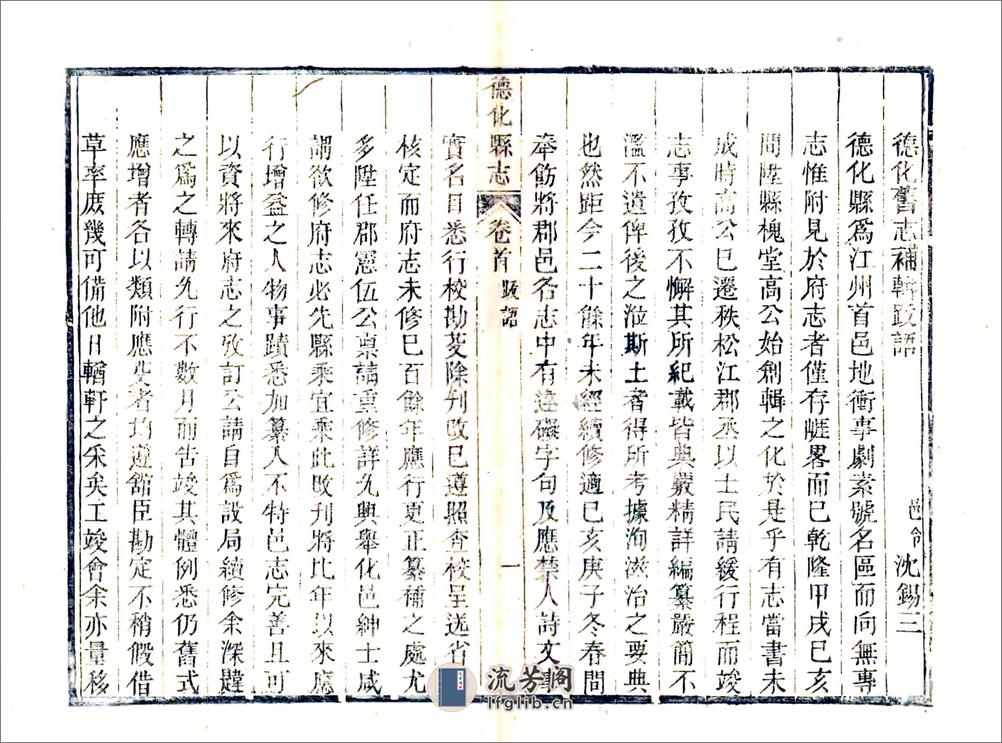 德化舊志補輯跋語
邑令沈錫三
德化縣爲江州首邑地衝事劇素號名區而向無專
志惟附見於府志者僅存崕畧而已乾隆甲戌已亥
間陞縣槐堂高公始創輯之化於是乎有志當書未
成時高公已遷秩松江郡丞以士民請緩行程而竣
志事孜孜不懈其所紀載皆典覈精詳編纂嚴簡不
濫不遺俾後之涖斯土者得所考據洵滋治之要典
也然距今二十餘年未經續修適已亥庚子冬春間
奉飭將郡邑各志中有違礙字句及應禁人詩文書
德化縣志
卷首
跋語
一
實名目悉行校勘芟除刋改已遵照查校呈送省局
核定而府志未修已百餘年應行更正纂補之處尤
多陞任郡憲伍公禀請重修詳允興舉化邑紳士咸
謂欲修府志必先縣乘宜乘此改刋將比年以來應
行增益之人物事蹟悉加纂入不特邑志完善且可
以資將來府志之攷訂公請自爲設局續修余深韙
之爲之轉請允行不數月而告竣其體例悉仍舊式
應增者各以類附應芟者均遵舘臣勘定不稍假借
草率庶幾可備他日輶軒之采矣工竣會余亦量移
流芳阁
lfglib.cn